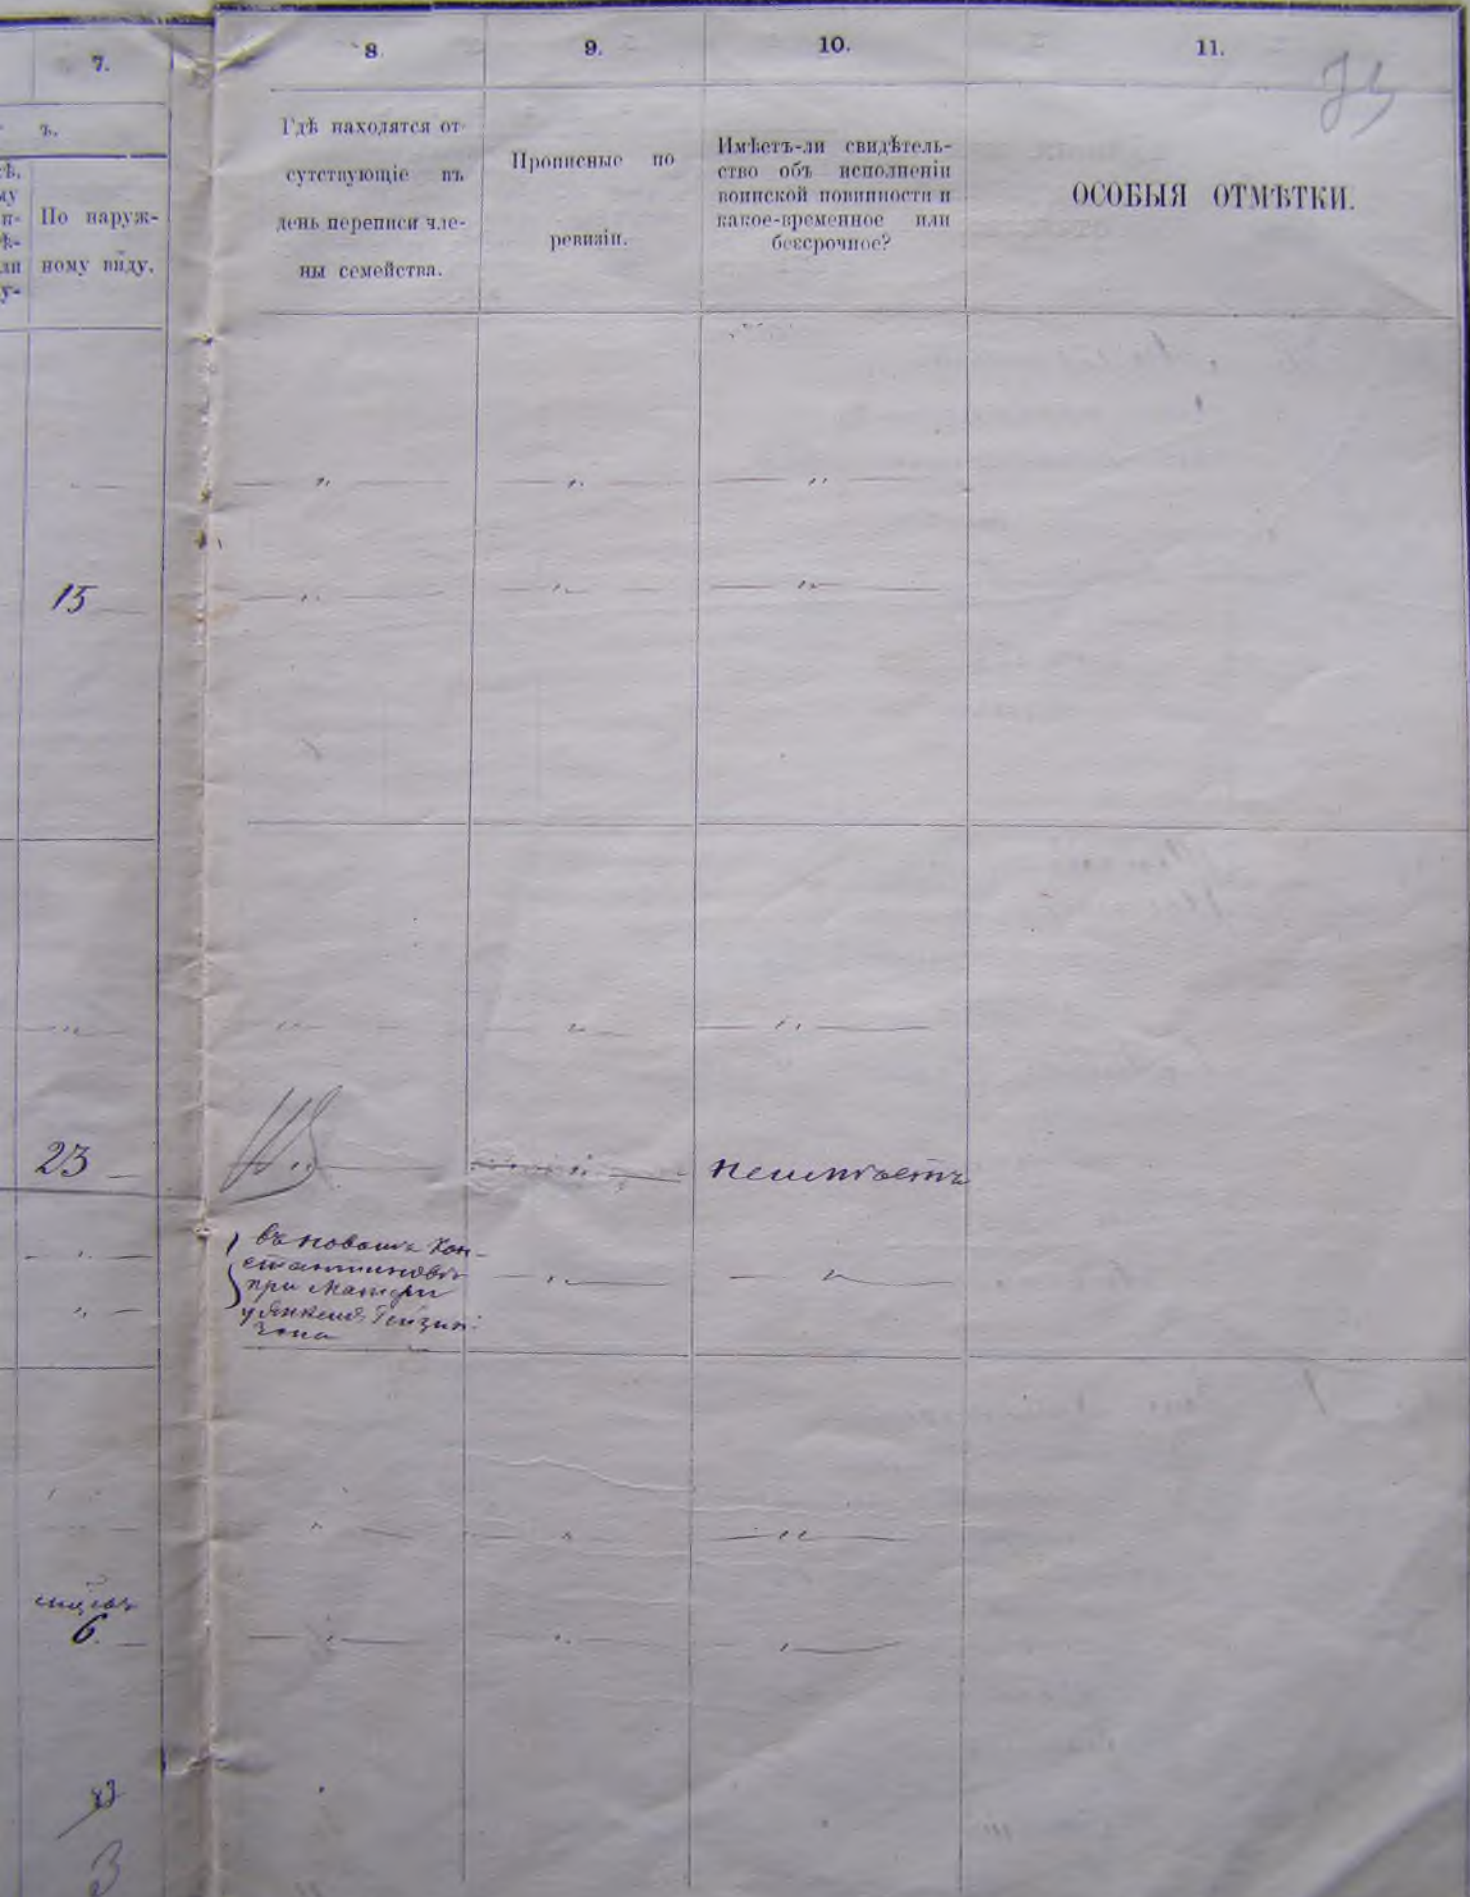 7.
8.
9.
10.
11.
ъ.
По наруж-
ному виду.
Гдѣ находятся от-
сутствующіе въ
день переписи чле-
ны семейства.
Прописные по
ревизіи.
Имѣетъ-ли свидѣтель-
ство объ исполненіи
воинской повинности и
какое-временное или
безсрочное?
ОСОБЫЯ ОТМѢТКИ.
15
23
неимѣетъ
въ новомъ Кон-
стантиновѣ
при Матери
у
зона
6
3